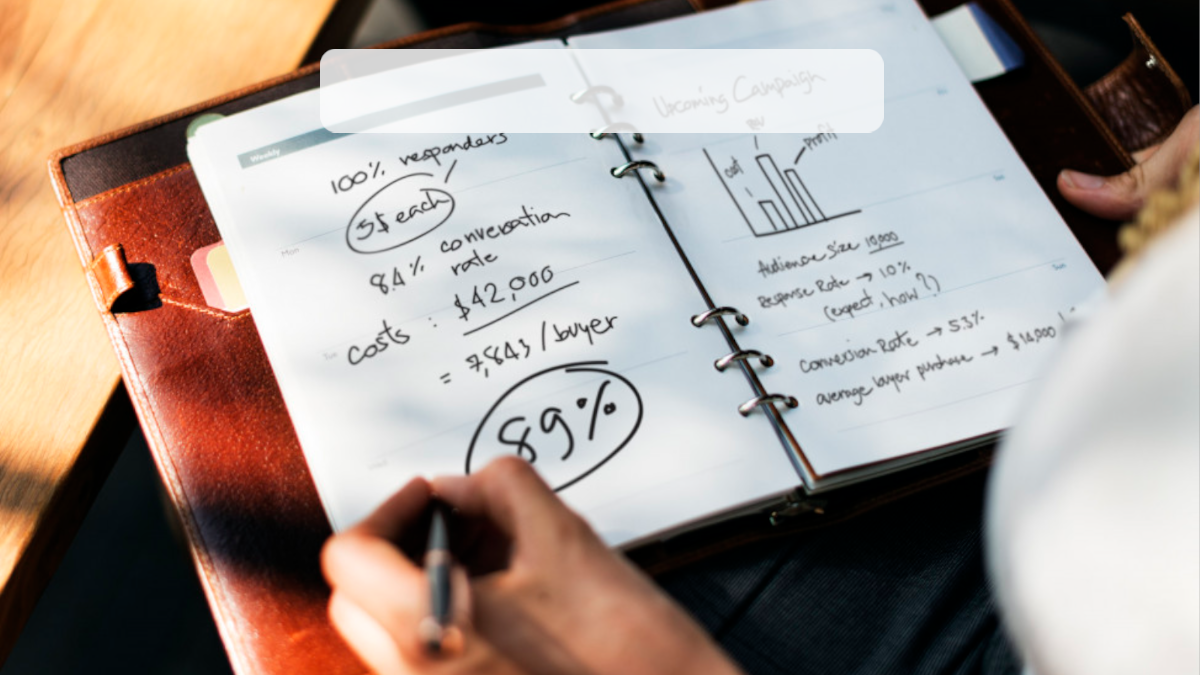 Weekly
100% responders
5$ each
8.4% conversation
rate
costs : $42,000
= 7,843 / buyer
89%
Mon
Upcoming Campaign
cost
profit
Audience Size 10,000
Response Rate → 10%
(expect, how?)
Conversion Rate → 5.3%
average buyer purchase → $14,000